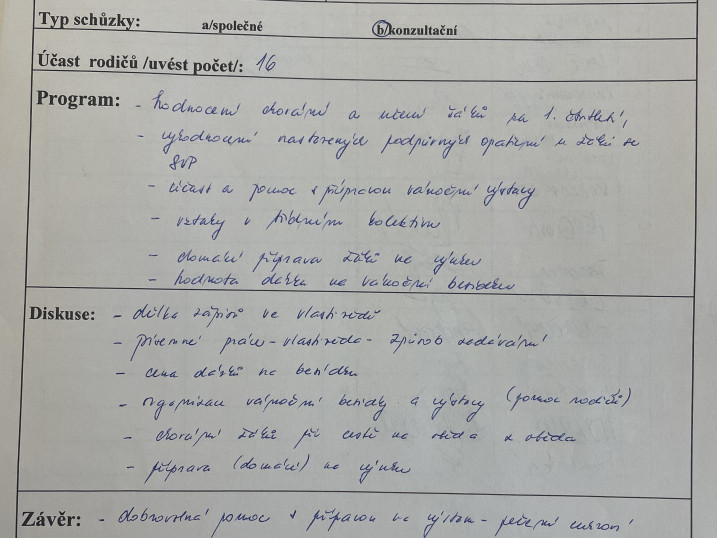 Typ schůzky: a/společné b/konzultační
Účast rodičů /uvést počet/: 16
Program: - hodnocení chování a učení žáků za 1. čtvrtletí,
- vyhodnocení nastavených podpůrných opatření u žáků se
SVP
- účast a pomoc s přípravou vánoční výstavy
- vztahy v třídním kolektivu
- domácí příprava žáků na výuku
- hodnota dárku na vánoční besídku
Diskuse: - délka zápisů ve vlastivědě
- písemné práce - vlastivěda - způsob zadávání
- cena dárků na besídku
- organizace vánoční besídky a výstavy (pomoc rodičů)
- chování žáků při cestě na oběd a z oběda
- příprava (domácí) na výuku
Závěr: - dobrovolná pomoc s přípravou na výstavu - pečení cukroví